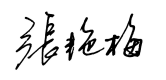 張艳梅